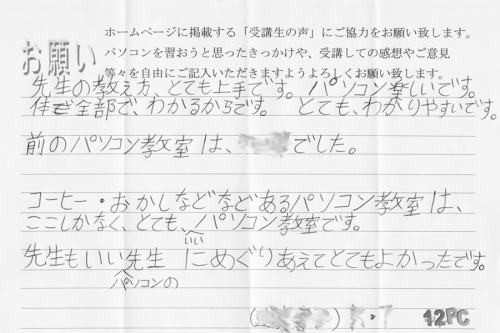 お願い
ホームページに掲載する「受講生の声」にご協力をお願い致します。
パソコンを習おうと思ったきっかけや、受講しての感想やご意見
等々を自由にご記入いただきますようよろしくお願い致します。
先生の教え方、とても上手です。パソコン楽しいです。
全部で、わかるからです。とても、わかりやすいです。
前のパソコン教室は、でした。
コーヒー・おかしなどなどあるパソコン教室は、
ここしかなく、とても、いいパソコン教室です。
先生もいいパソコンの先生にめぐりあえてとてもよかったです。
12PC